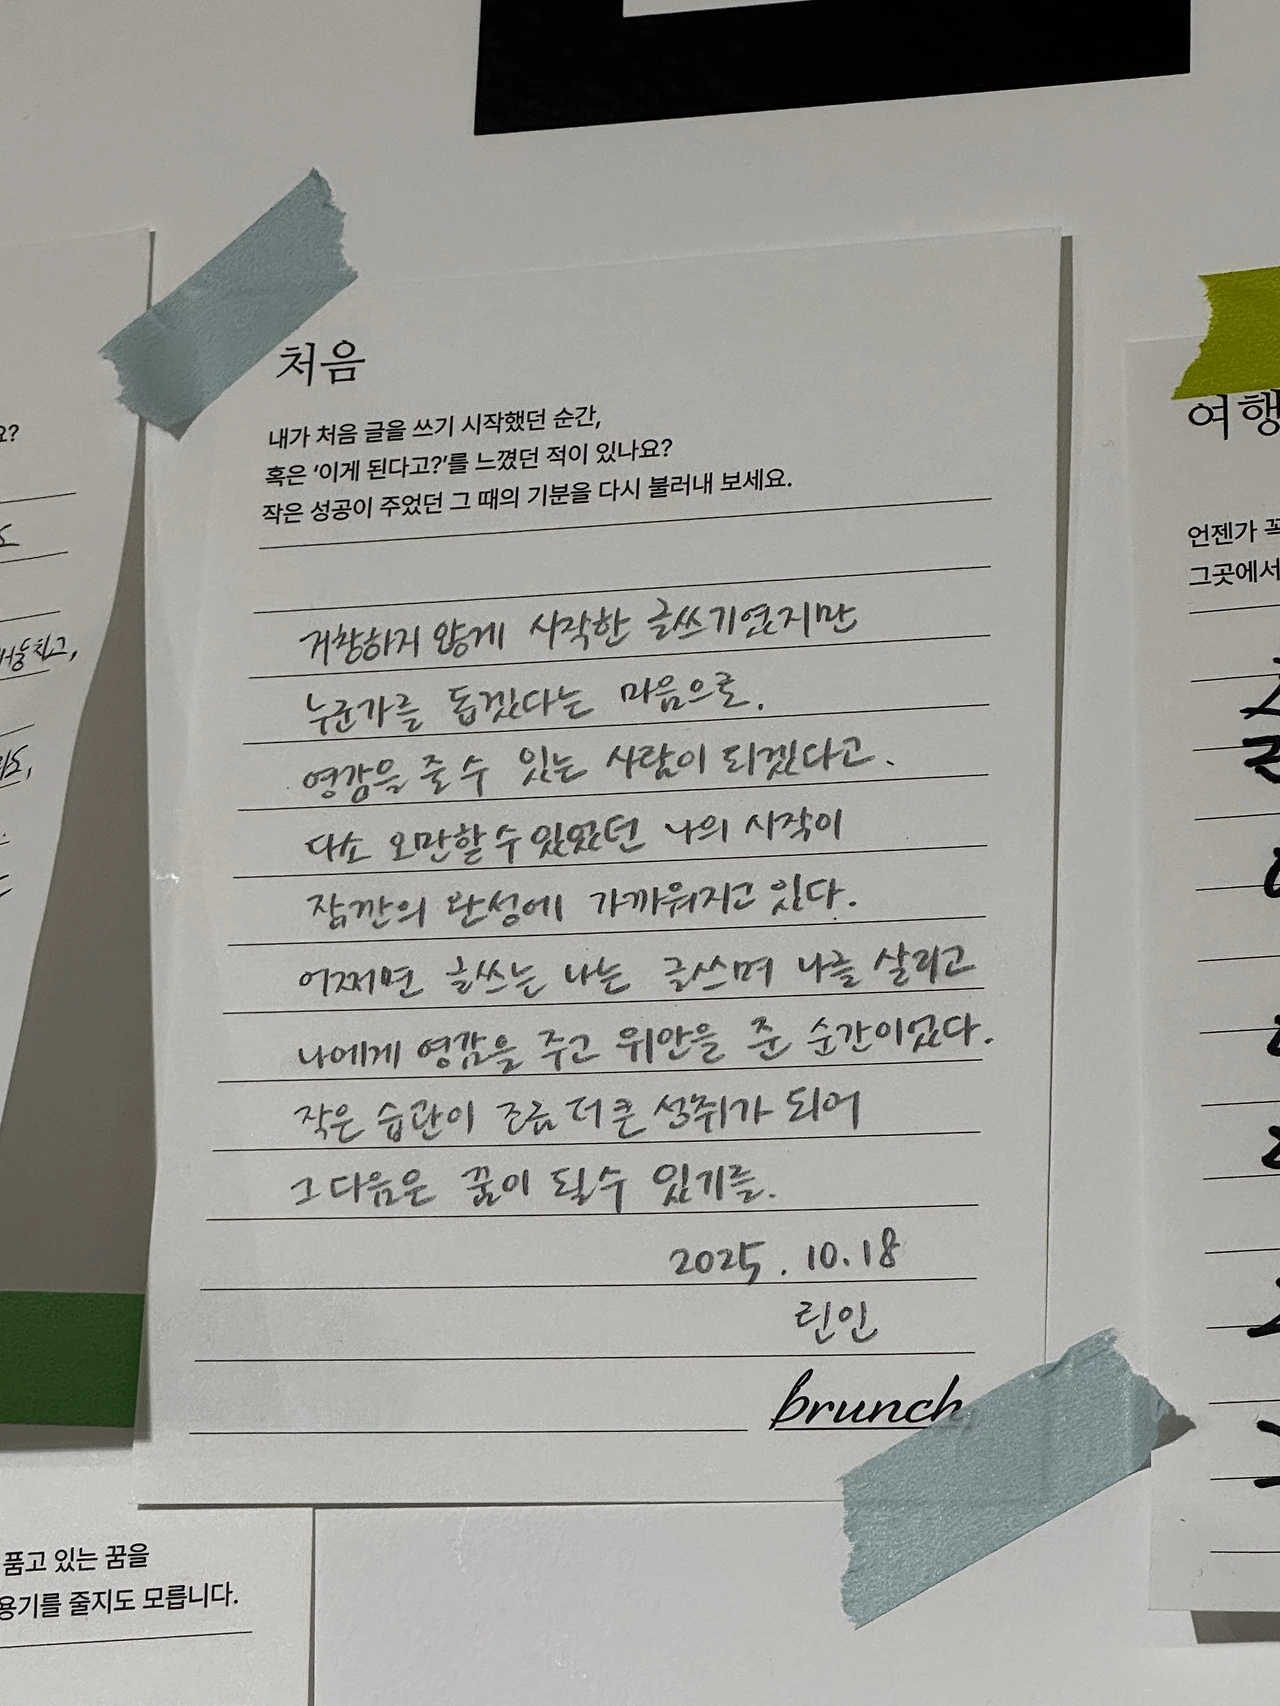 처음
내가 처음 글을 쓰기 시작했던 순간,
혹은 '이게 된다고?'를 느꼈던 적이 있나요?
작은 성공이 주었던 그 때의 기분을 다시 불러내 보세요.
거창하지 않게 시작한 글쓰기였지만
누군가를 돕겠다는 마음으로.
영감을 줄 수 있는 사람이 되겠다고.
다소 오만할 수 있었던 나의 시작이
잠깐의 완성에 가까워지고 있다.
어쩌면 글쓰는 나는 글쓰며 나를 살리고
나에게 영감을 주고 위안을 준 순간이었다.
작은 습관이 조금 더 큰 성취가 되어
그 다음은 꿈이 될 수 있기를.
2025. 10. 18
린인
brunch
요?
여행
언젠가 꼭
그곳에서
품고 있는 꿈을
용기를 줄지도 모릅니다.